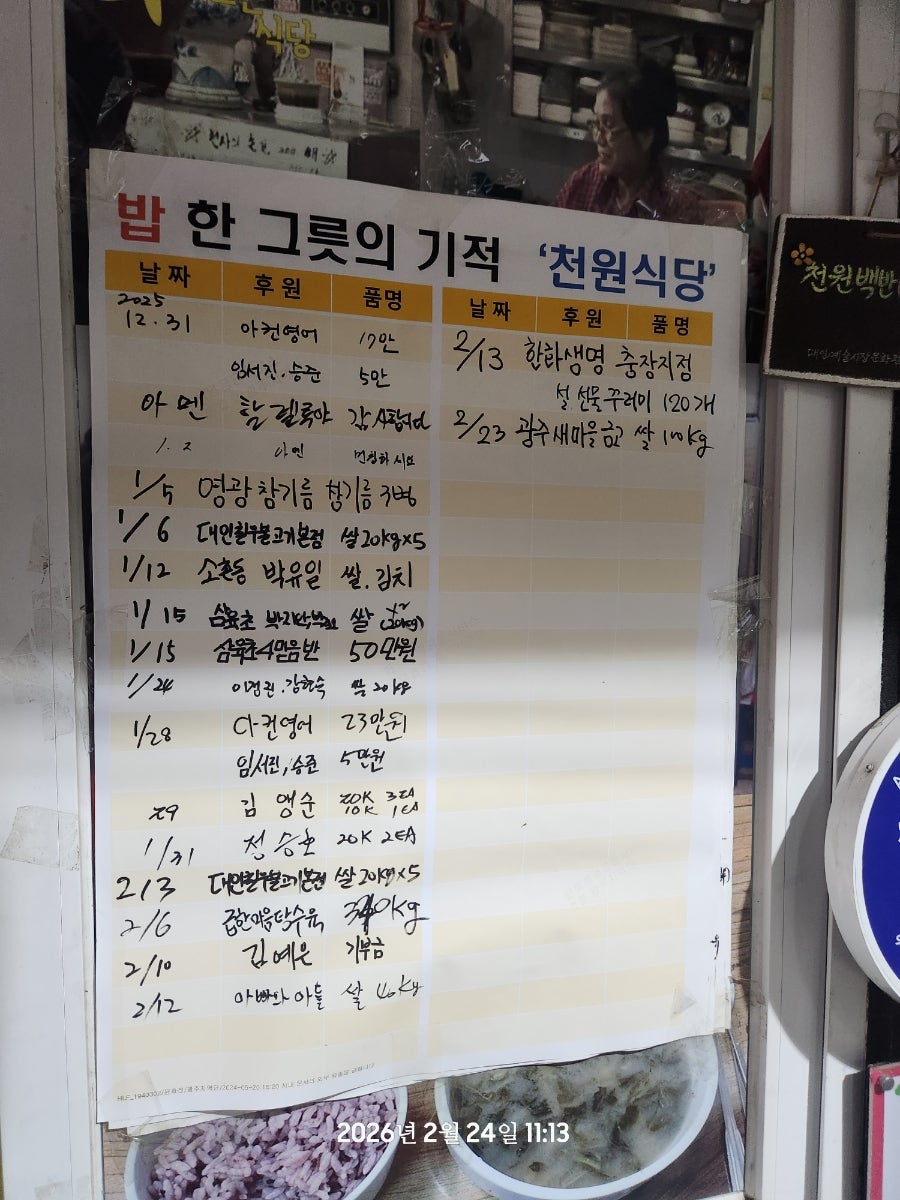 식당
밥 한 그릇의 기적 '천원식당'
날짜 후원 품명
2025
12.31 아컨영어 17만
임서진.승준 5만
아멘 할렐루야 감사합니다
1.2
1/5 영광참기름 참기름 3병
1/6 대인한우불고기본점 쌀20kg×5
1/12 소촌동 박유일 쌀.김치
1/15 삼육초 쌀 (20kg)
1/15 삼육초4믿음반 50만원
1/24 쌀 20kg
1/28 아컨영어 23만원
임서진,승준 5만원
김앵순 20K 3EA
10K 1EA
1/31 정승호 20K 2EA
2/3 대인한우불고기본점 쌀20kg×5
2/6 급한마음탕수육 kg
2/10 김예은 기부금
2/12 아빠와 아들 쌀 40kg
날짜 후원 품명
2/13 한화생명 충장지점
설 선물꾸러미 120개
2/23 광주새마을금고 쌀 100kg
천원백반
2026년 2월 24일 11:13